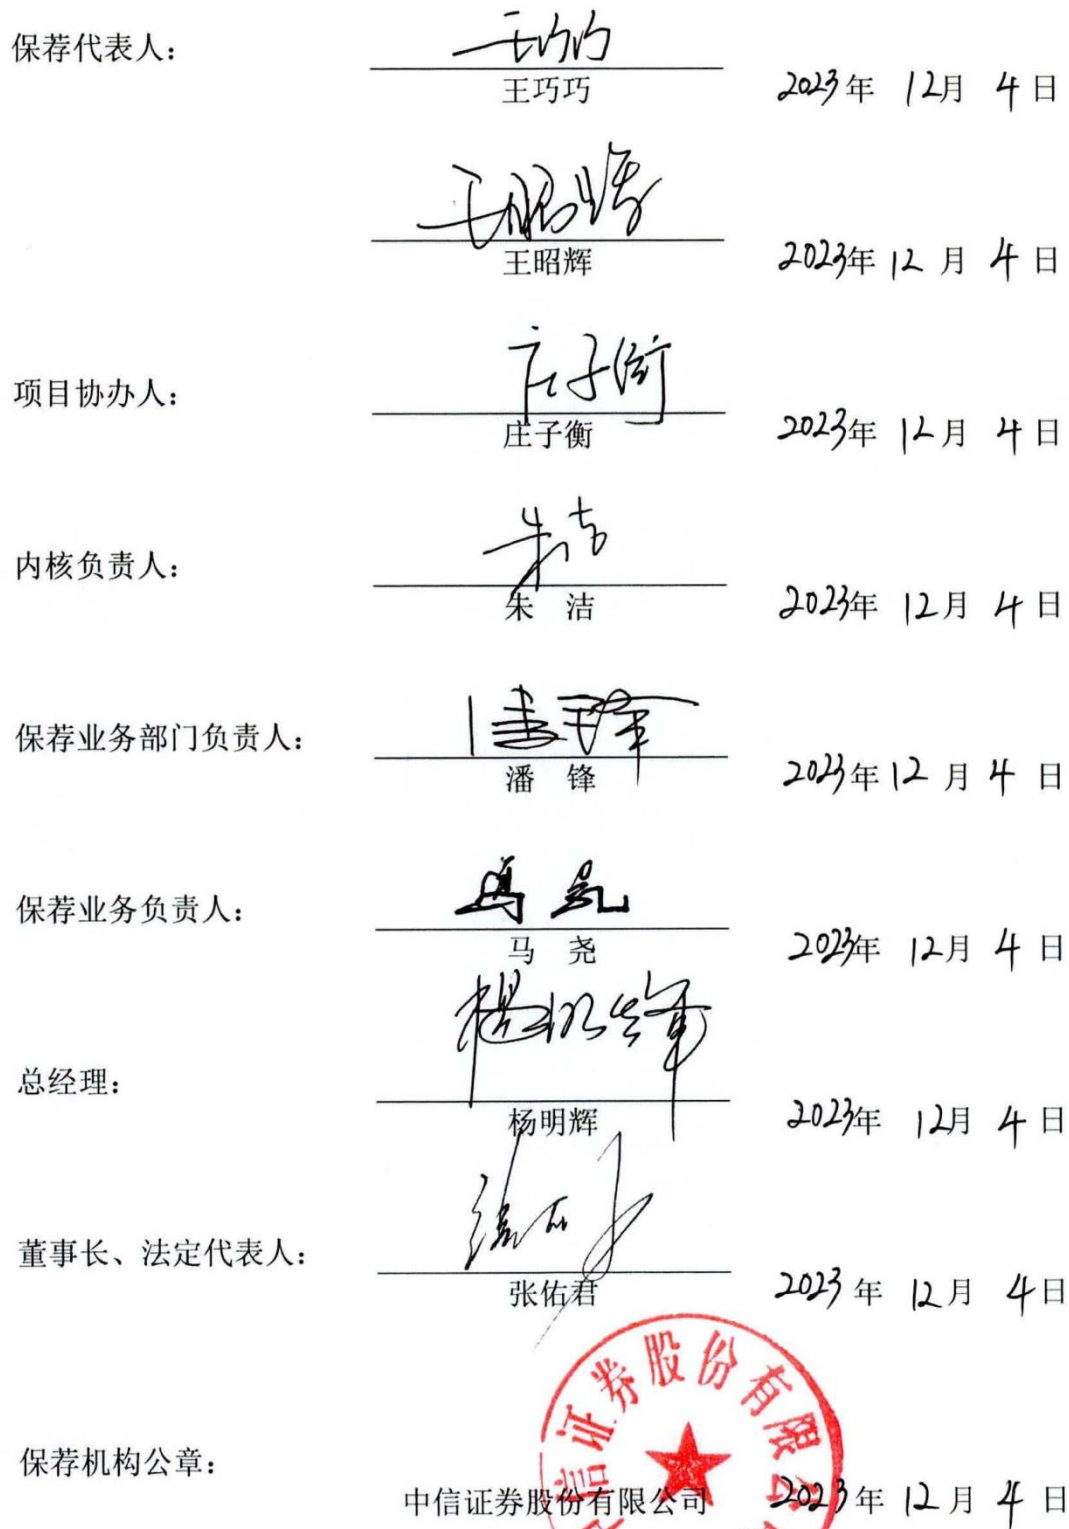 保荐代表人：
王巧巧
王巧巧 2023年 12月 4日
王昭辉
王昭辉 2023年 12月 4日
项目协办人：
庄子衡
庄子衡 2023年 12月 4日
内核负责人：
朱洁
朱 洁 2023年 12月 4日
保荐业务部门负责人：
潘锋
潘 锋 2023年 12月 4日
保荐业务负责人：
马尧
马 尧 2023年 12月 4日
杨明辉
总经理：
杨明辉 2023年 12月 4日
董事长、法定代表人：
张佑君
张佑君 2023年 12月 4日
信证券股份有限公
保荐机构公章：
中信证券股份有限公司 2023年 12月 4日